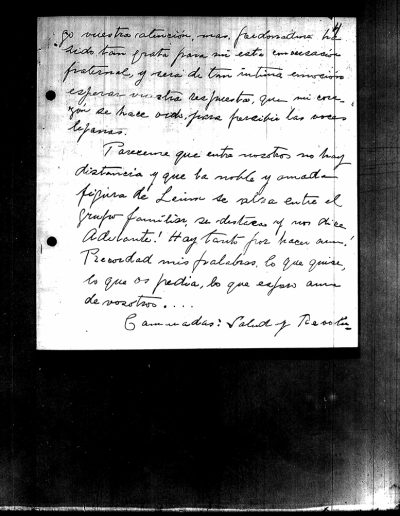 4
go vuestra atención, mas, perdonadme ha
sido tan grata para mi esta conversación
fraternal, y será de tan íntima emoción
esperar vuestra respuesta, que mi cora-
zón se hace oído, para percibir las voces
lejanas.
Pareceme que entre nosotros no hay
distancia y que la noble y amada
figura de Lenin se alza entre el
grupo familiar, se destaca y nos dice
Adelante! Hay tanto por hacer aun!
Recordad mis palabras, lo que quise,
lo que os pedia, lo que espero aun
de vosotros....
Camaradas: Salud y Revolu-